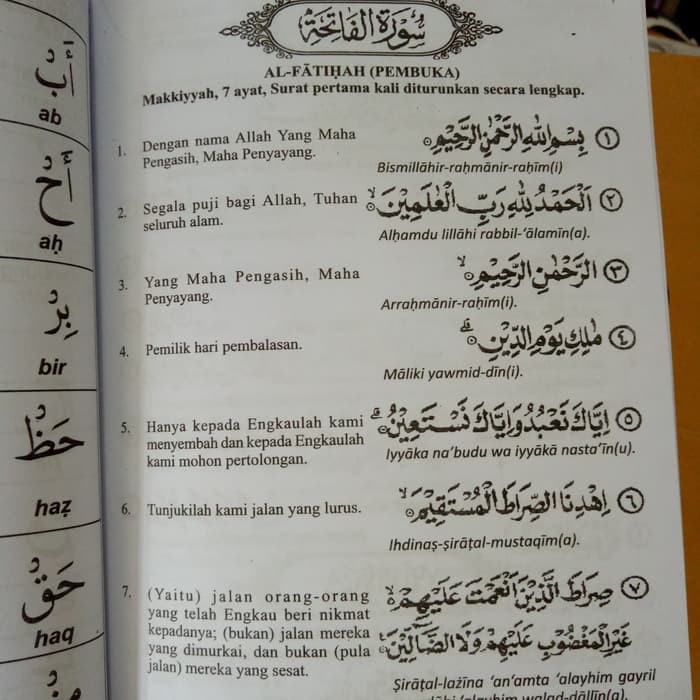 أَبْ
ab
أَحْ
aḥ
بِرْ
bir
حَظْ
haẓ
حَقْ
haq
سُورَةُ الْفَاتِحَةِ
AL-FĀTIḤAH (PEMBUKA)
Makkiyyah, 7 ayat, Surat pertama kali diturunkan secara lengkap.
1. Dengan nama Allah Yang Maha
Pengasih, Maha Penyayang.
بِسْمِ اللّٰهِ الرَّحْمٰنِ الرَّحِيْمِ ١
Bismillāhir-raḥmānir-raḥīm(i)
2. Segala puji bagi Allah, Tuhan
seluruh alam.
اَلْحَمْدُ لِلّٰهِ رَبِّ الْعٰلَمِيْنَۙ ٢
Alḥamdu lillāhi rabbil-‘ālamīn(a).
3. Yang Maha Pengasih, Maha
Penyayang.
الرَّحْمٰنِ الرَّحِيْمِۙ ٣
Arraḥmānir-raḥīm(i).
4. Pemilik hari pembalasan.
مٰلِكِ يَوْمِ الدِّيْنِۗ ٤
Māliki yawmid-dīn(i).
5. Hanya kepada Engkaulah kami
menyembah dan kepada Engkaulah
kami mohon pertolongan.
اِيَّاكَ نَعْبُدُ وَاِيَّاكَ نَسْتَعِيْنُۗ ٥
Iyyāka na’budu wa iyyākā nasta’īn(u).
6. Tunjukilah kami jalan yang lurus.
اِهْدِنَا الصِّرَاطَ الْمُسْتَقِيْمَۙ ٦
Ihdinaṣ-ṣirāṭal-mustaqīm(a).
7. (Yaitu) jalan orang-orang
yang telah Engkau beri nikmat
kepadanya; (bukan) jalan mereka
yang dimurkai, dan bukan (pula
jalan) mereka yang sesat.
صِرَاطَ الَّذِيْنَ اَنْعَمْتَ عَلَيْهِمْۙ ٧
غَيْرِ الْمَغْضُوْبِ عَلَيْهِمْ وَلَا الضَّاۤلِّيْنَ
Ṣirāṭal-lażīna ‘an‘amta ‘alayhim gayril
‘alayhim walaḍ-ḍāllīn(a)